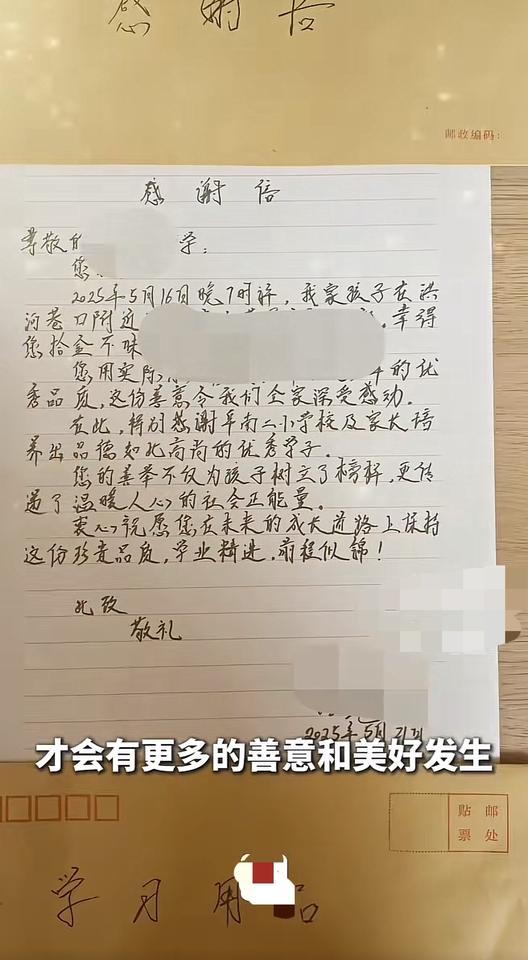 感谢信
邮政编码：
感谢信
尊敬的 学：
您
2025年5月16日晚7时许，我家孩子在洪
河巷口附近 。幸得
您拾金不昧
您用实际 的优
秀品质，这份善意令我们全家深受感动。
在此，特别感谢阜南二小学校及家长培
养出品德如此高尚的优秀学子。
您的善举不仅为孩子树立了榜样，更传
递了温暖人心的社会正能量。
衷心祝愿您在未来的成长道路上保持
这份珍贵品质，学业精进，前程似锦！
此致
敬礼
2025年5月21日
才会有更多的善意和美好发生
贴 邮
票 处
学习用品